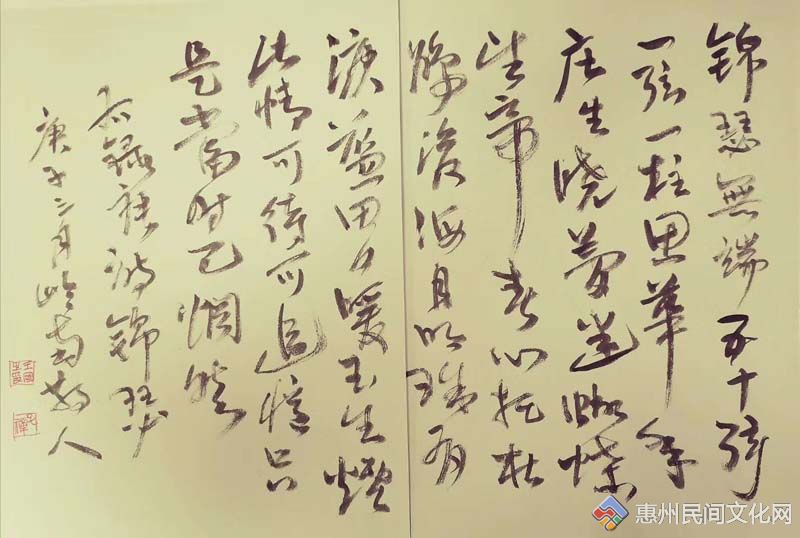 锦瑟無端五十弦
一弦一柱思華年
庄生晓夢迷蝴蝶
望帝春心托杜
鹃沧海月明珠有
淚蓝田日暖玉生煙
此情可待可追憶只
是當时已惘然
右録诗锦瑟
庚子三月岭南散人
惠州民间文化网